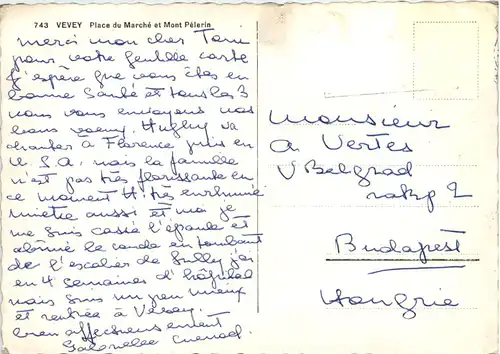 743 VEVEY Place du Marché et Mont Pèlerin
merci mon cher Toni
pour votre gentille carte
J'espère que vous êtes en
bonne Santé et tous les 3
nous vous envoyons nos
bons voeux. Hughy va
chanter à Florence puis en
U.S.A. mais la famille
n'est pas très florissante en
ce moment H. très enrhumé
aussi et moi je
me suis cassé l'épaule et
abîmé le coude en tombant
de l'escalier de Gilly j'ai
eu 4 semaines d'hôpital
mais suis un peu mieux
et rentrée à Vevey.
bien affectueusement
Gabrielle Cuenod
Monsieur
A Vertes
V Belgrad
rakp 2
Budapest
Hongrie